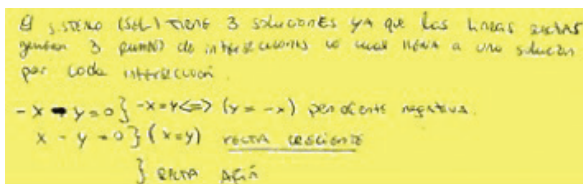 El sistema (SEL) tiene 3 soluciones ya que las lineas rectas
generan 3 puntos de intersecciones lo cual lleva a una solucion
por cada interseccion.
-x - y = 0 } -x = y <=> (y = -x) pendiente negativa.
x - y = 0 } (x = y) recta creciente
} recta afín